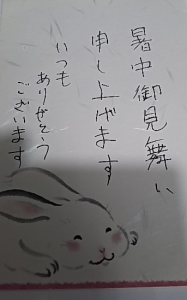 暑中御見舞い
申し上げます
いつも
ありがとう
ございます